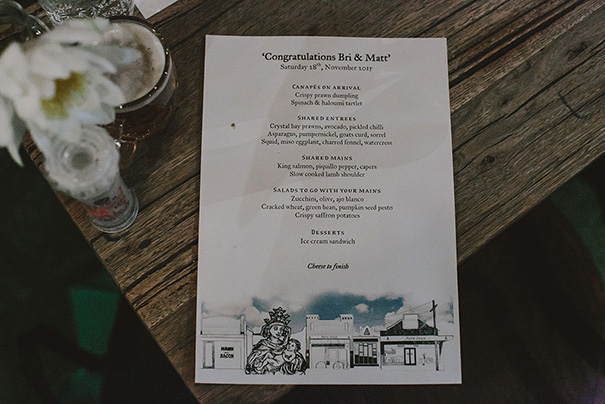 'Congratulations Bri & Matt'
Saturday 28th, November 2015
Canapés on arrival
Crispy prawn dumpling
Spinach & haloumi tartlet
Shared entrees
Crystal bay prawns, avocado, pickled chilli
Asparagus, pumpernickel, goats curd, sorrel
Squid, miso eggplant, charred fennel, watercress
Shared mains
King salmon, piquillo pepper, capers
Slow cooked lamb shoulder
Salads to go with your mains
Zucchini, olive, ajo blanco
Cracked wheat, green bean, pumpkin seed pesto
Crispy saffron potatoes
Desserts
Ice cream sandwich
Cheese to finish
BACON